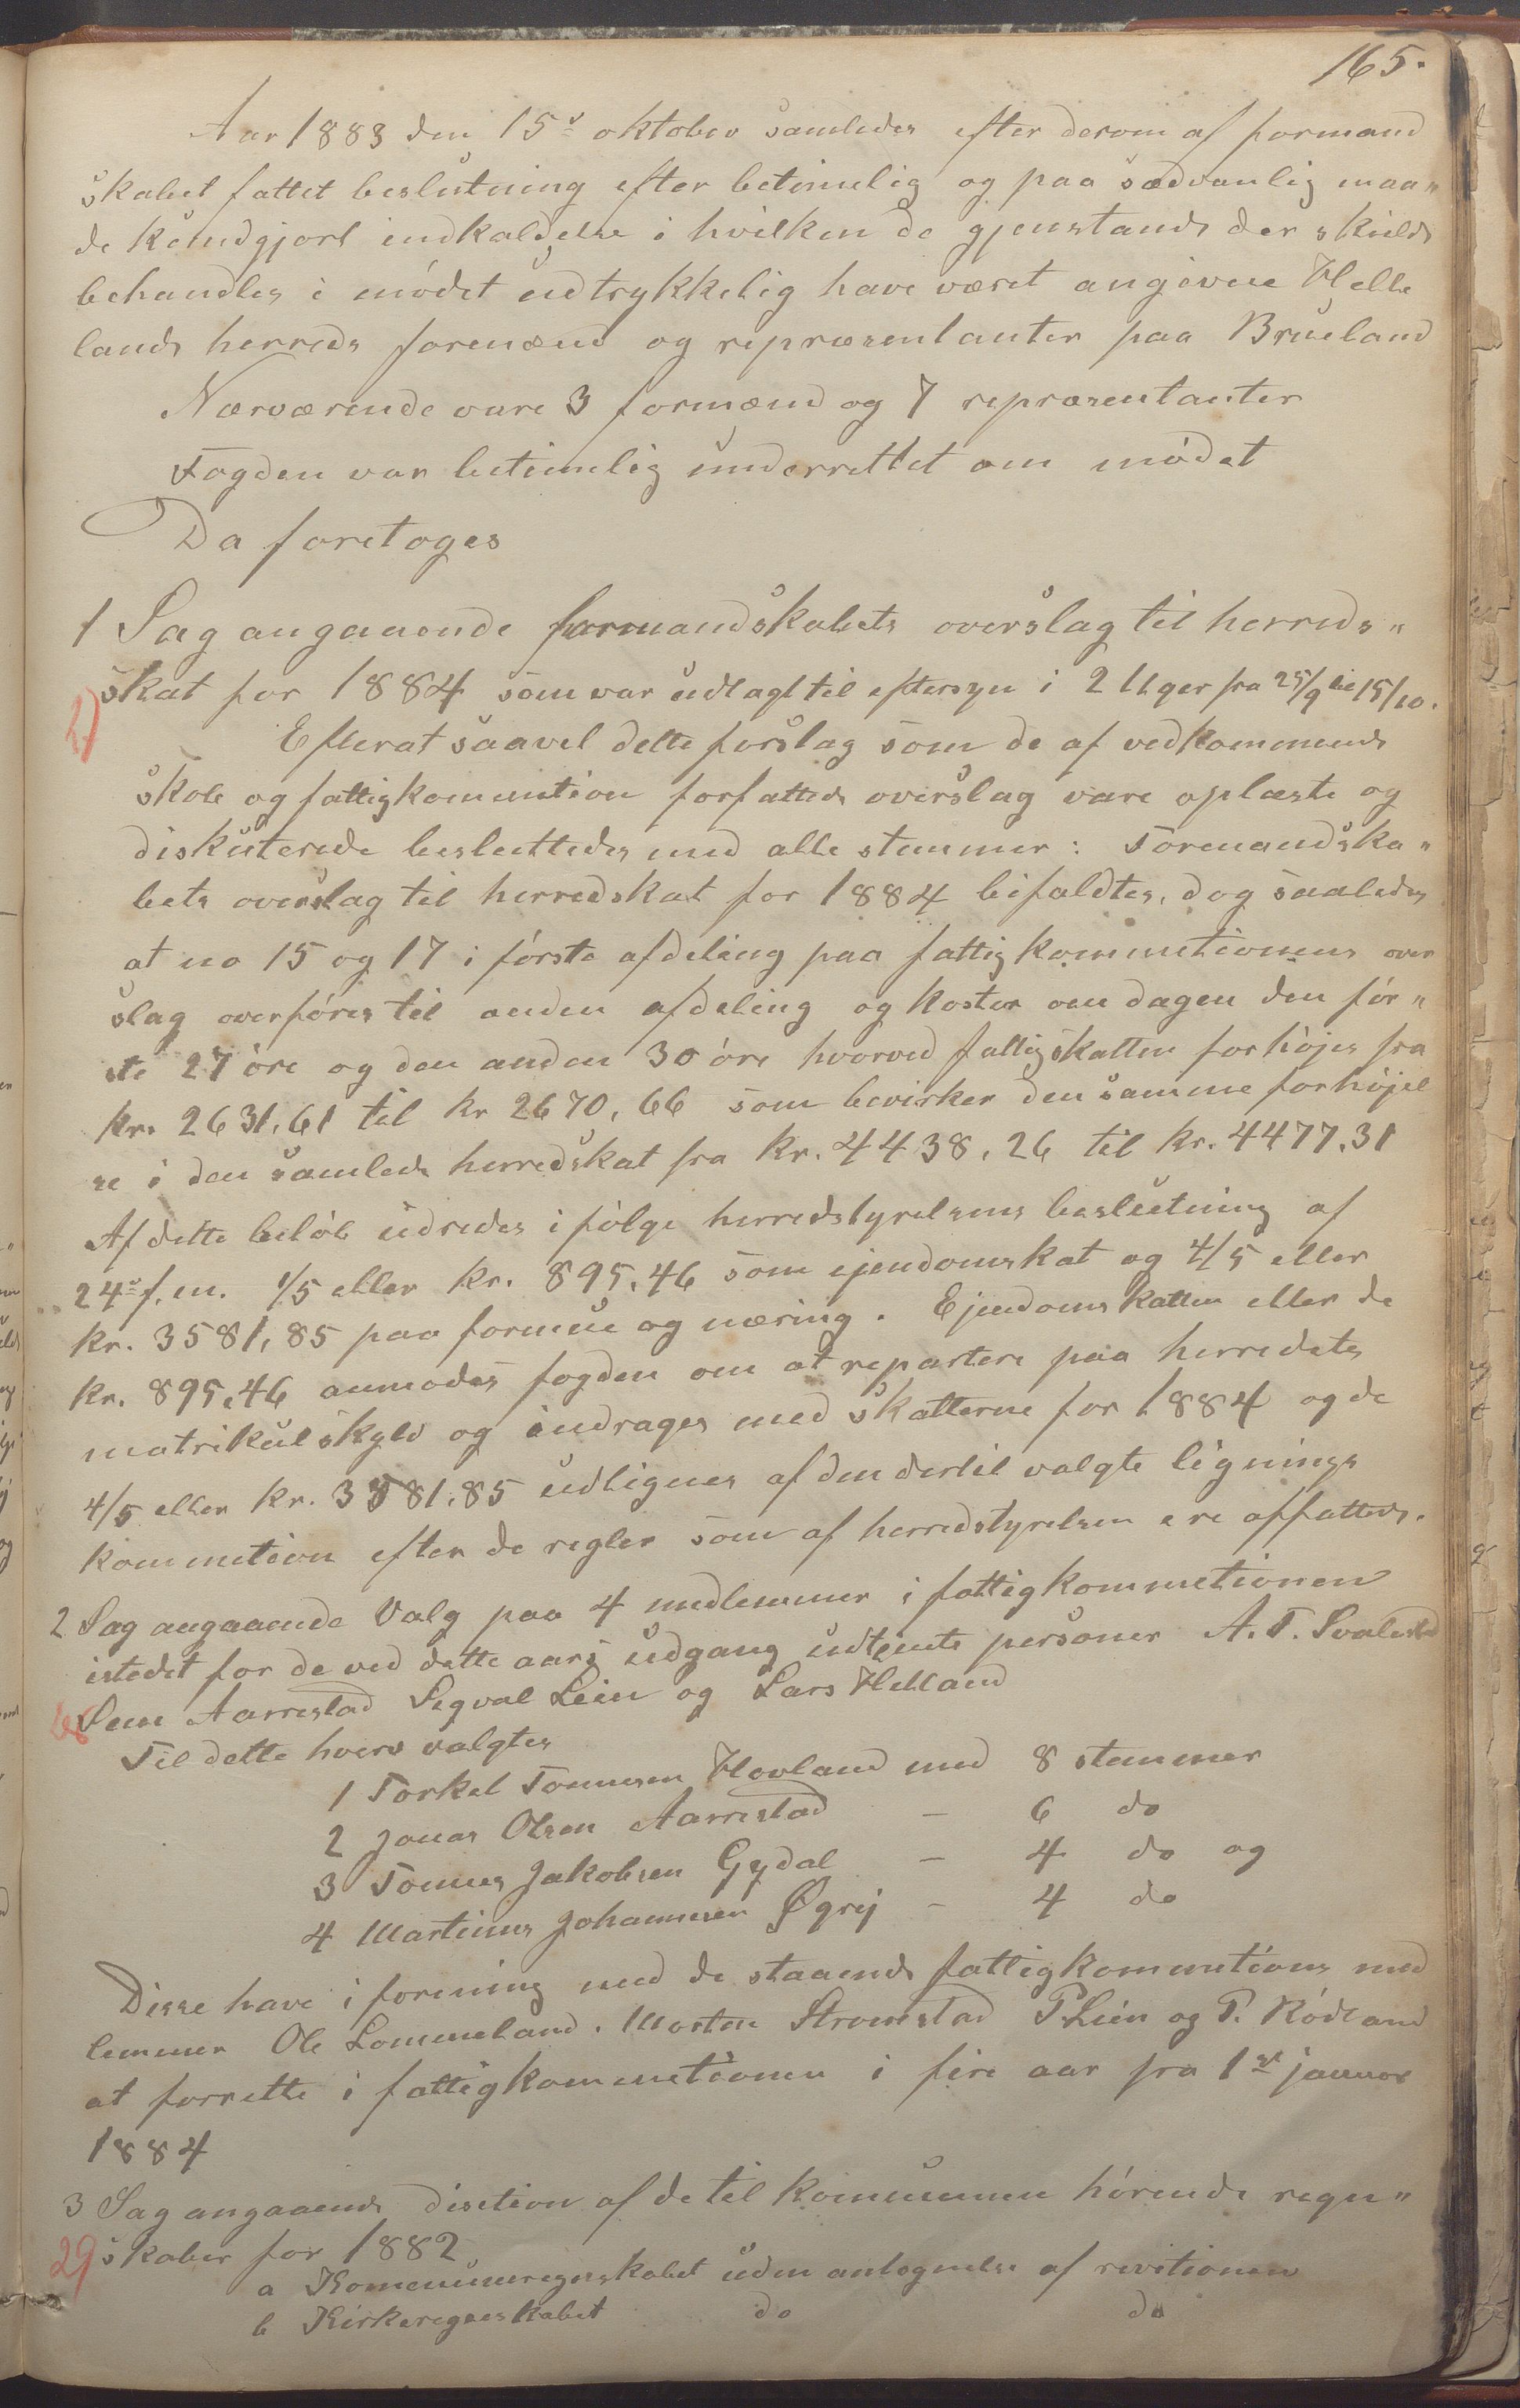 165.
Aar 1883 den 15de oktober samledes efter derom af formand
skabet fattet beslutning efter betimelig og paa sædvanlig maa„
de kundgjort indkaldelse i hvilken de gjenstande der skulde
behandles i mødet udtrykkelig have været angivene Helle
lands herreds formænd og repræsentanter paa Brueland
Nærværende vare 3 formænd og 7 repræsentanter
Fogden var betimelig underrettet om mødet
Da foretoges
1 Sag angaaende formandskabets overslag til herreds„
skat for 1884 som var udlagt til eftersyn i 2 Uger fra 25/9 til 15/10.
Efterat saavel dette forslag som de af vedkommende
skole og fattigkommition forfattede overslag vare oplæste og
diskuterede besluttedes med alle stemmer: Formandska„
bets overslag til herredskat for 1884 bifaldtes, dog saaledes
at no 15 og 17 i første afdeling paa fattigkommitionens over
slag overføres til anden afdeling og koster om dagen den før„
ste 27 øre og den anden 30 øre hvorved fattigskatten forhøjes fra
kr. 2631,61 til kr 2670,66 som bevirker den samme forhøjel
se i den samlede herredskat fra kr. 4438,26 til kr. 4477,31
Af dette beløb udredes i følge herredstyrelsens beslutning af
24de f.m. 1/5 eller kr. 895,46 som ejendomskat og 4/5 eller
kr. 3581,85 paa formue og næring. Ejendomskatten eller de
kr. 895,46 anmodes fogden om at repartere paa herredets
matrikulskyld og indrages med skatterne for 1884 og de
4/5 eller kr. 3581,85 udlignes af den dertil valgte lignings
kommition efter de regler som af herredstyrelsen ere affattede.
2 Sag angaaende Valg paa 4 medlemmer i fattigkommitionen
istedet for de ved dette aars udgang udtjente personer A. T. Svalestad
Sem Aarrestad Segval Lein og Lars Helland
Til dette hverv valgtes
1 Torkel Tonnesen Hovland med 8 stemmer
2 Jonas Olsen Aarrestad – 6 do
3 Tønnes Jakobsen Gydal – 4 do og
4 Martinus Johannesen Øgrej – 4 do
Disse have i forening med de staaende fattigkommitions med
lemmer Ole Lommeland. Morten Stromstad P Lien og P. Rødland
at forrette i fattigkommitionen i fire aar fra 1st januar
1884
3 Sag angaaende disetion af de til kommunen hørende regn„
29 skaber for 1882
a Kommuneregnskabet uden antegnelse af revitionen
b Kirkeregnskabet do do